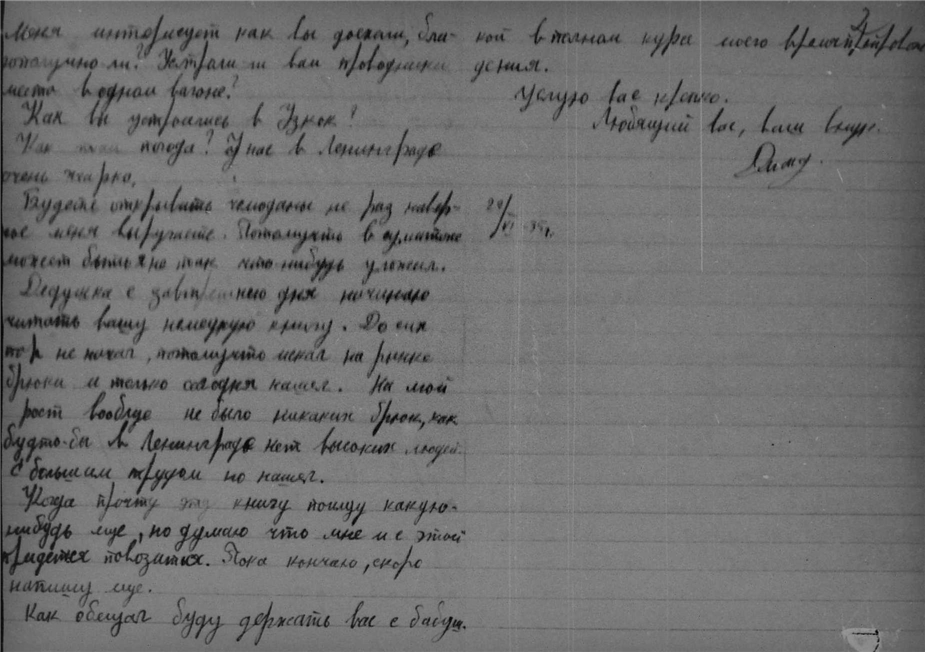 Меня интересует как вы доехали, бла-
гополучно ли? Устроили ли вам проводники
место в одном вагоне?
Как вы устроились в
Как там погода? У нас в Ленинграде
очень жарко,
Будете открывать чемоданы не раз навер-
ное меня выругаете. Потомучто в суматохе
может быть я не так что-нибудь уложил.
Дедушка с завтрешнего дня начинаю
читать вашу немецкую книгу. До сих
пор не начал, потомучто искал на рынке
брюки и только сегодня нашел. На мой
рост вообще не было никаких брюк, как
будто-бы в Ленинграде нет высоких людей.
С большим трудом но нашел.
Когда прочту эту книгу поищу какую-
нибудь еще, но думаю что мне и с этой
придется повозиться. Пока кончаю, скоро
напишу еще.
Как обещал буду держать вас с бабуш.
кой в полном курсе моего время препрово
дения.
Целую вас крепко.
Любящий вас, ваш внук.
Дима.
29/VI 35г.